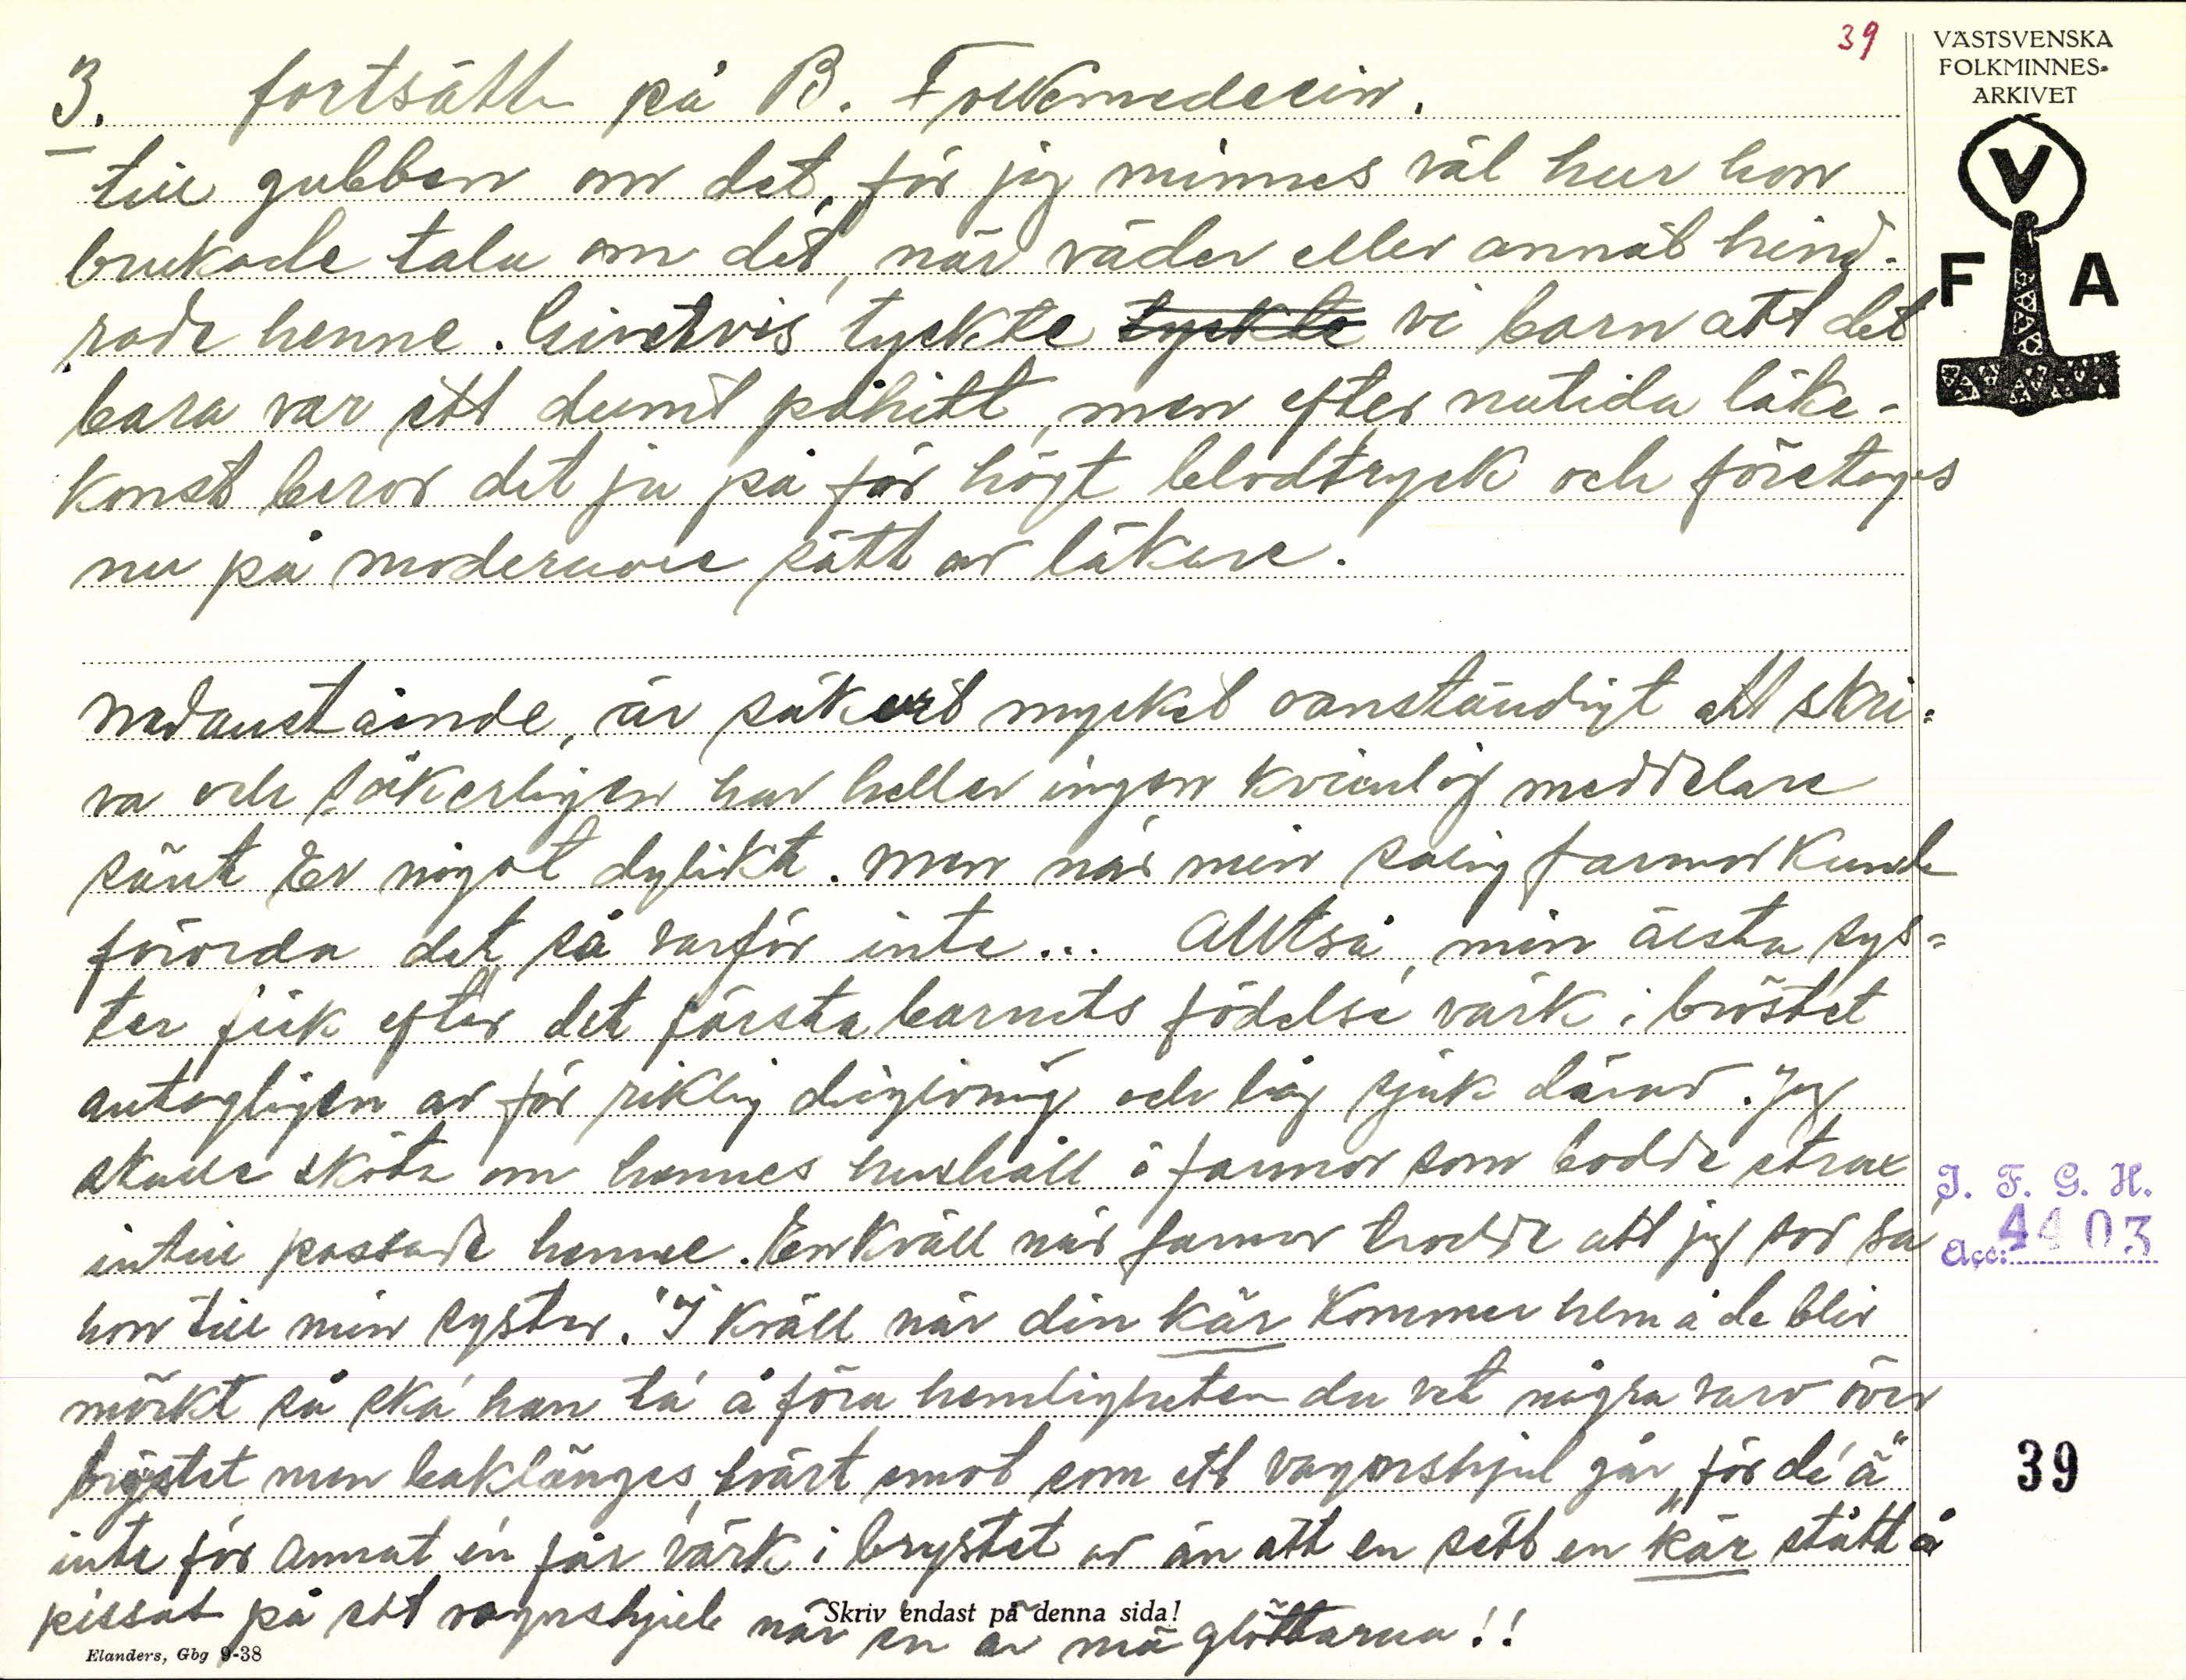 39
VÄSTSVENSKA
FOLKMINNES-
ARKIVET
V
F A
3. fortsättn på B. Folkmedecin.
till gubben om det, för jag minnes väl hur hon
brukade tala om det, när väder eller annat hind-
rade henne. Givetvis tyckte tyckte vi barn att det
bara var ett dumt påhitt, men efter nutida läke-
konst beror det ju på för högt blodtryck och företages
nu på modernare sätt av läkare.
Nedanstående, är säkert mycket oanständigt att skri=
va och säkerligen har heller ingen kvinlig meddelare
sänt Er något dylikt. Men när min salig farmor kunde
förorda det så varför inte... Alltså, min älsta sys=
ter fick efter det första barnets födelse värk i bröstet
antagligen av för riklig digivning och låg sjuk därav. Jag
skulle sköta om hennes hushåll å farmor som bodde strax
intill passade henne. En kväll när farmor trodde att jag sov sa
hon till min syster. "I kväll när din kär kommer hem å de blir
mörkt så ska' han ta' å föra hemligheten du vet några varv över
bröstet men baklänges, tvärt emot som ett vagnshjul går, för de' ä"
inte för annat en får värk i brystet av än att en sett en "kär stått å
pissat på ett vagnshjul när en är mä glöttarna!!
Skriv endast på denna sida!
Elanders, Gbg 9-38
I. F. G. H.
Acc: 4403
39